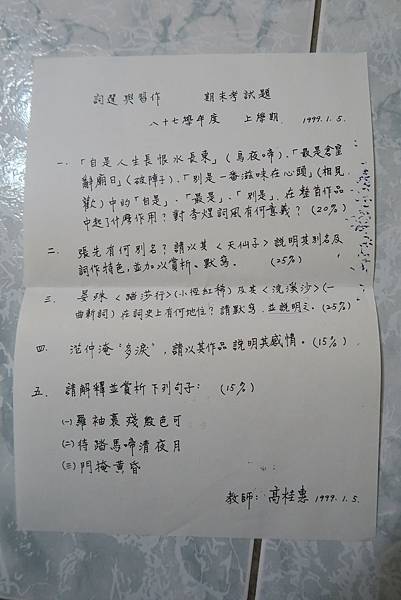 詞選與習作　　期末考試題
八十七學年度　上學期　1999.1.5.
一、「自是人生長恨水長東」(烏夜啼)、「最是倉皇
辭廟日」(破陣子)、「別是一番滋味在心頭」(相見
歡)中的「自是」、「最是」、「別是」，在整首作品
中起了什麼作用？對李煜詞風有何意義？(20%)
二、張先有何別名？請以其〈天仙子〉說明其別名及
詞作特色，並加以賞析、默寫。(25%)
三、晏殊〈踏莎行〉(小徑紅稀)及其〈浣溪沙〉(一
曲新詞)在詞史上有何地位？請默寫，並說明之。(25%)
四、范仲淹“多淚”，請以其作品說明其感情。(15%)
五、請解釋並賞析下列句子：(15%)
(一)羅袖裛殘殷色可
(二)待踏馬啼清夜月
(三)門掩黃昏
教師：高桂惠 1999.1.5.